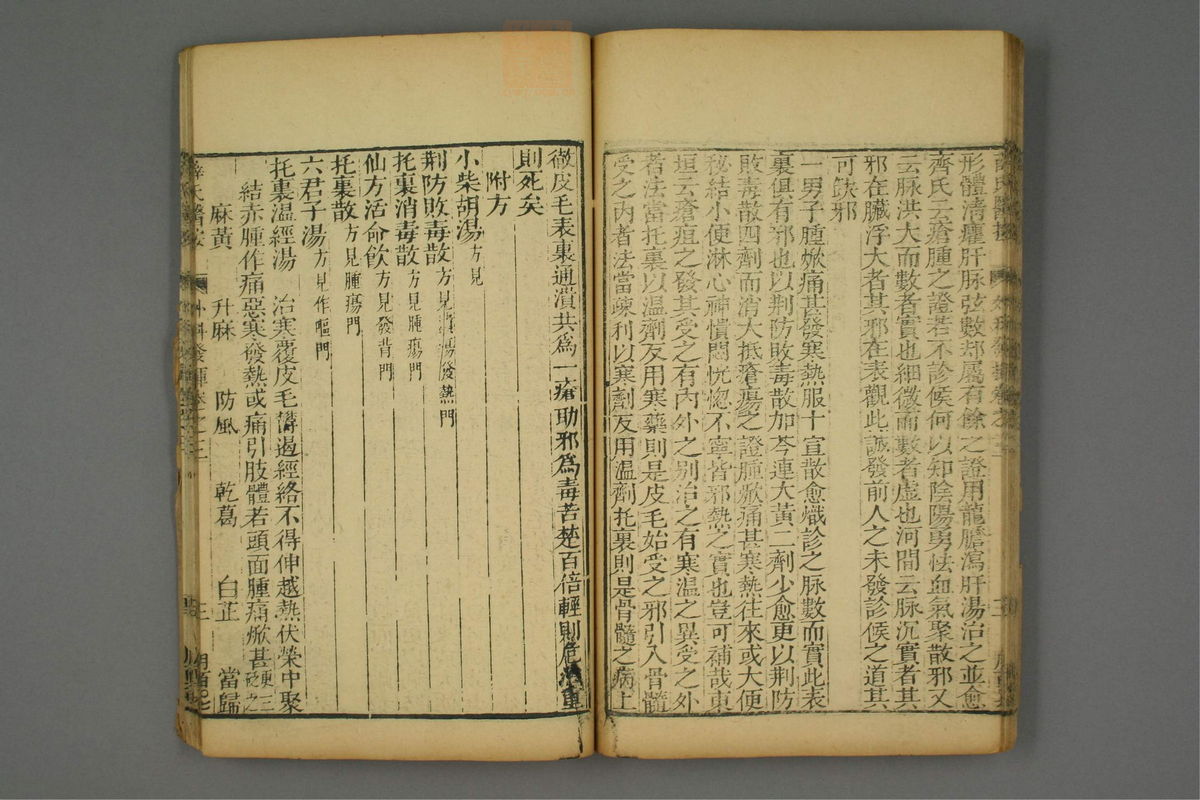 形體清癯肝脉弦數却屬有餘之證用龍膽瀉肝湯治之並愈
齊氏云瘡腫之證若不診候何以知陰陽勇怯血氣聚散邪又
云脉洪大而數者實也細微而數者虛也河間云脉沉實者其
邪在臟浮大者其邪在表觀此誠發前人之未發診候之道其
可缺邪
一男子腫焮痛甚發寒熱服十宣散愈熾診之脉數而實此表
裏俱有邪也以荆防敗毒散加芩連大黃二劑少愈更以荆防
敗毒散四劑而消大抵瘡瘍之證腫焮痛甚寒熱往來或大便
秘結小便淋心神憒悶恍惚不寧皆邪熱之實也豈可補哉東
垣云瘡疽之發其受之有內外之别治之有寒温之異受之外
者法當托裏以温劑反用寒藥則是皮毛始受之邪引入骨髓
受之內者法當疎利以寒劑反用温劑托裏則是骨髓之病上
徹皮毛表裏通潰共爲一瘡助邪爲毒苦楚百倍輕則危重
則死矣
附方
小柴胡湯方見
荆防敗毒散方見瘍發熱門
托裏消毒散方見腫瘍門
仙方活命飲方見發背門
托裏散方見腫瘍門
六君子湯方見作嘔門
托裏温經湯 治寒覆皮毛欝遏經絡不得伸越熱伏榮中聚
結赤腫作痛惡寒發熱或痛引肢體若頭面腫痛焮甚更砭之
麻黃 升麻 防風 乾葛 白芷 當歸
薛氏醫案 外科發揮卷之三